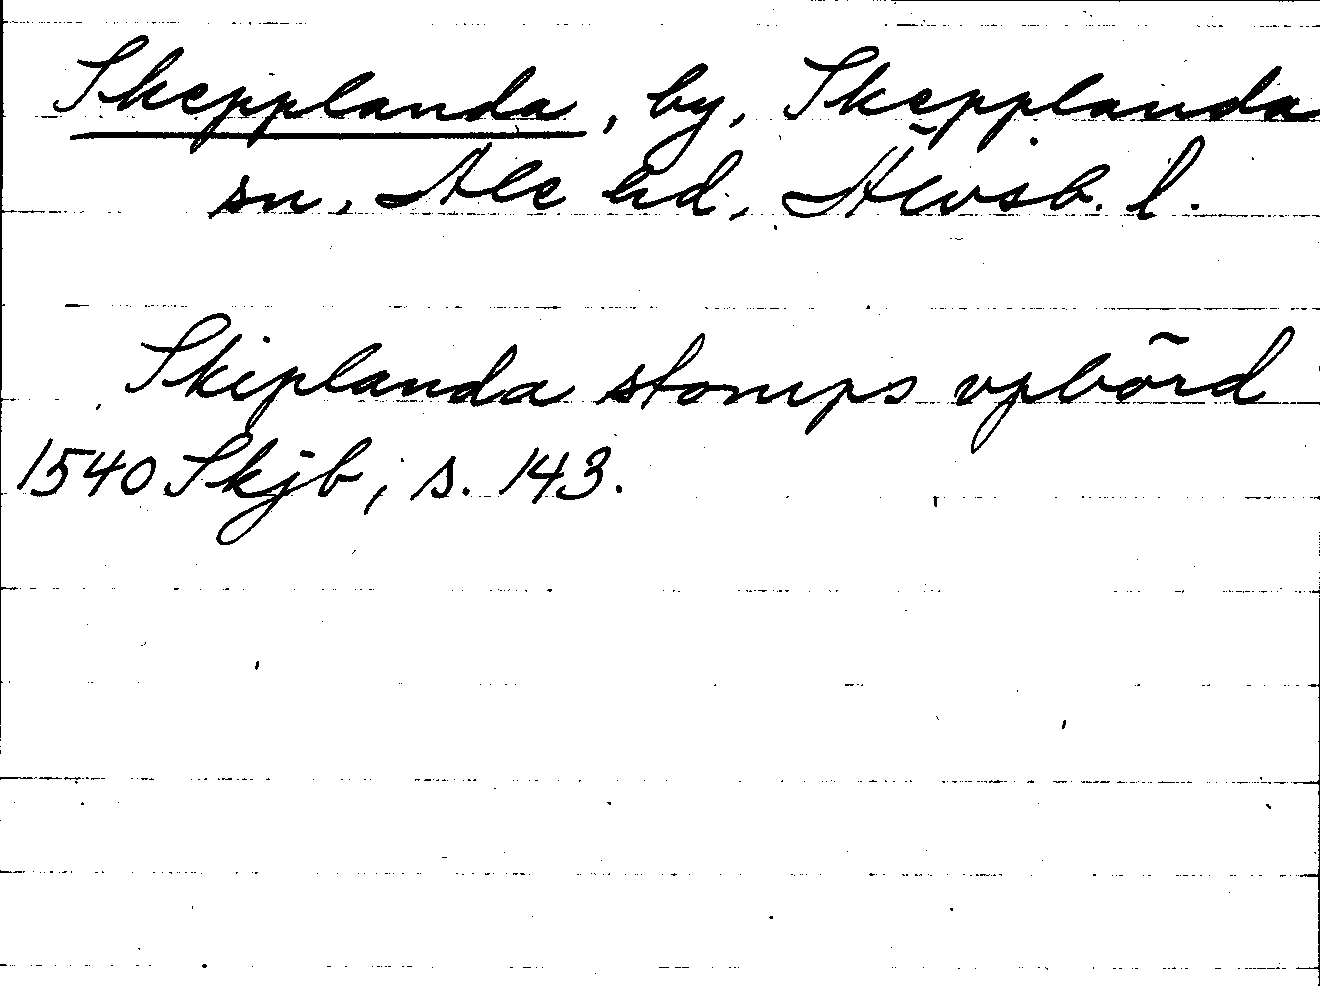 Skepplanda, by, Skepplanda
sn, Ale hd, Älvsb. l.
Skiplanda stomps vpbörd
1540 Skjb, s. 143.